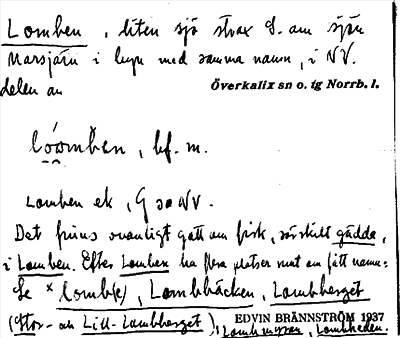 Lomben, liten sjö strax S. om sjön
Narsjärv i byn med samma namn, i NV.
delen av
Överkalix sn o. tg Norrb. l.
lóòmben, bf. m.
Lomben ek, G 30 NV.
Det finns ovanligt gott om fisk, särskilt gädda,
i Lomben. Efter Lomben ha flera platser runt om fått namn:
Se × Lomb(e), Lombbäcken, Lombberget
(Stor- och Lill-Lombberget),
EDVIN BRÄNNSTRÖM 1937
Lombmyran, Lombheden.